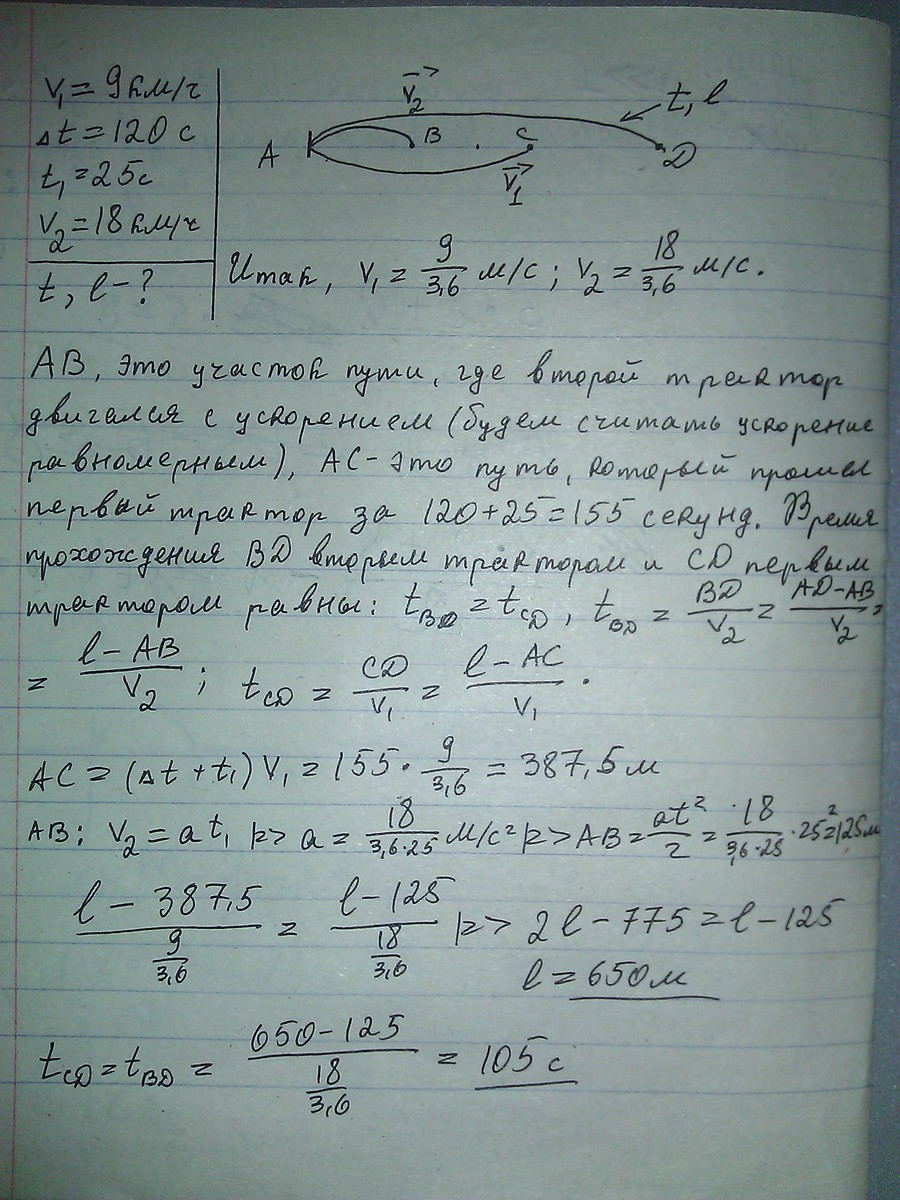 V₁ = 9 км/ч
Δt = 120 с
t₁ = 25с
V₂ = 18 км/ч
t, l - ?
V₂
t, l
A
B
C
D
V₁
Итак, V₁ = 9/3,6 м/с ; V₂ = 18/3,6 м/с.
AB, это участок пути, где второй трактор
двигался с ускорением (будем считать ускорение
равномерным), AC - это путь, который прошел
первый трактор за 120+25=155 секунд. Время
прохождения BD вторым трактором и CD первым
трактором равны: t_BD = t_CD , t_BD = BD/V₂ = (AD-AB)/V₂ =
= (l-AB)/V₂ ; t_CD = CD/V₁ = (l-AC)/V₁ .
AC = (Δt + t₁) V₁ = 155 · 9/3,6 = 387,5 м
AB: V₂ = at₁ => a = 18/(3,6·25) м/с² => AB = at²/2 = 18/(3,6·25) · 25² = 125м
(l - 387,5)/(9/3,6) = (l-125)/(18/3,6) => 2l - 775 = l - 125
l = 650 м
t_CD = t_BD = (650-125)/(18/3,6) = 105 с